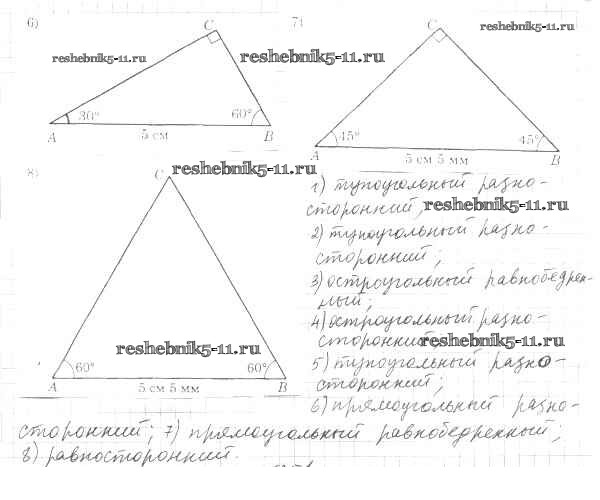 6)
C
reshebnik5-11.ru
reshebnik5-11.ru
30°
60°
A
5 см
B
7)
C
reshebnik5-11.ru
45°
45°
A
5 см 5 мм
B
8)
C
reshebnik5-11.ru
reshebnik5-11.ru
60°
60°
A
5 см 5 мм
B
1) тупоугольный разно-
сторонний;
reshebnik5-11.ru
2) тупоугольный разно-
сторонний;
3) остроугольный равнобедрен-
ный;
4) остроугольный разно-
сторонний
reshebnik5-11.ru
5) тупоугольный разно-
сторонний;
6) прямоугольный разно-
сторонний; 7) прямоугольный равнобедренный;
8) равносторонний.